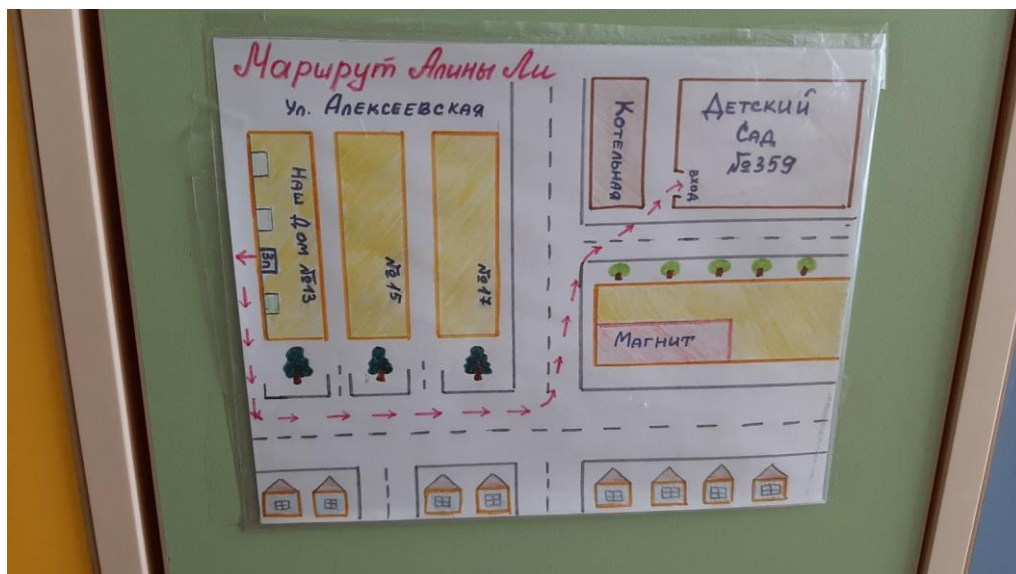 Маршрут Алины Ли
Ул. Алексеевская
Наш Дом №13
3п
№15
№17
Котельная
Детский
Сад
№359
вход
Магнит